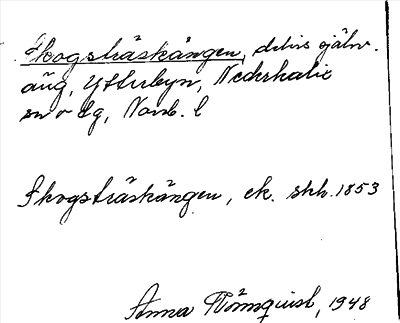 Skogsträskängen, delvis själv.
äng, Ytterbyn, Nederkalix
sn o dg, Norrb. l
Skogsträskängen, ek. skh. 1853
Anna Rönnquist, 1948